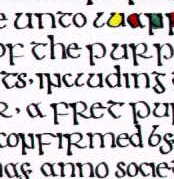 e unto
of the purp
ts, including
r, a fret pu
confirmed by
has anno societ